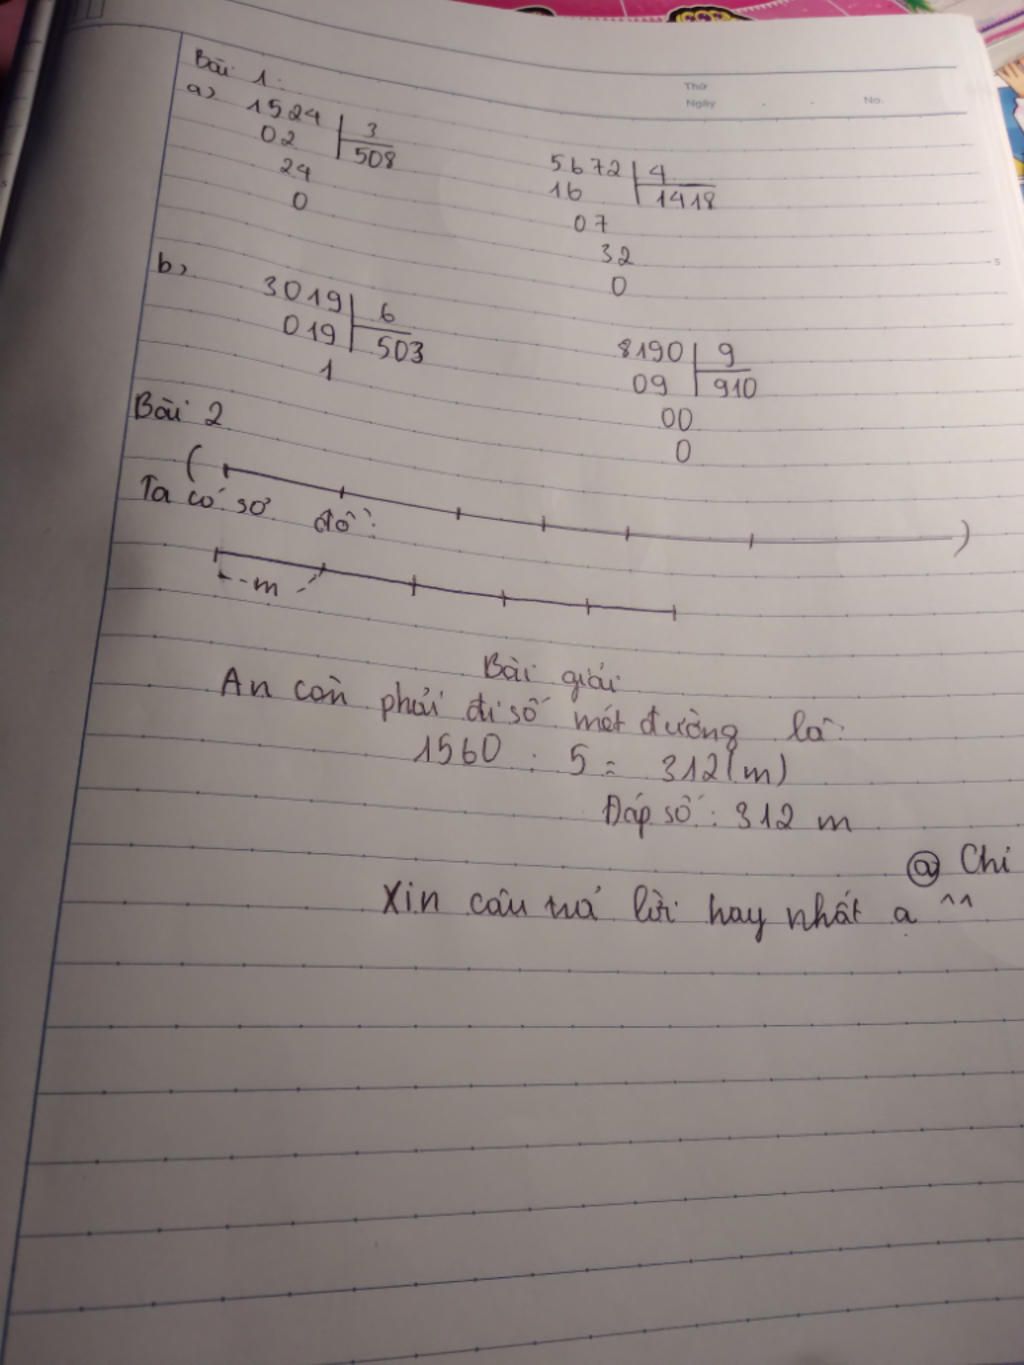 Thứ
Ngày . . No.
Bài 1:
a) 1524 3
02 508
24
0
5672 4
16 1418
07
32
0
b) 3019 6
019 503
1
8190 9
09 910
00
0
Bài 2
( )
Ta có sơ đồ:
m
Bài giải
An còn phải đi số mét đường là:
1560 : 5 = 312(m)
Đáp số: 312 m
@ Chi
Xin câu trả lời hay nhất ạ ^^
5